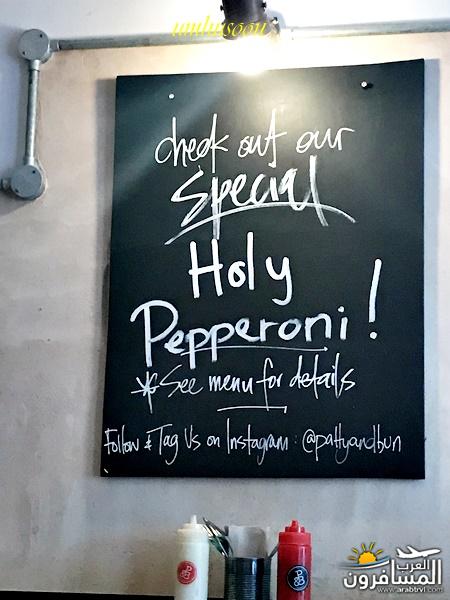 umhusoou
check out our
Special
Holy
Pepperoni!
*See menu for details
Follow & Tag Us on Instagram: @pattyandbun
العرب
المسافرون
www.arabtrvl.com